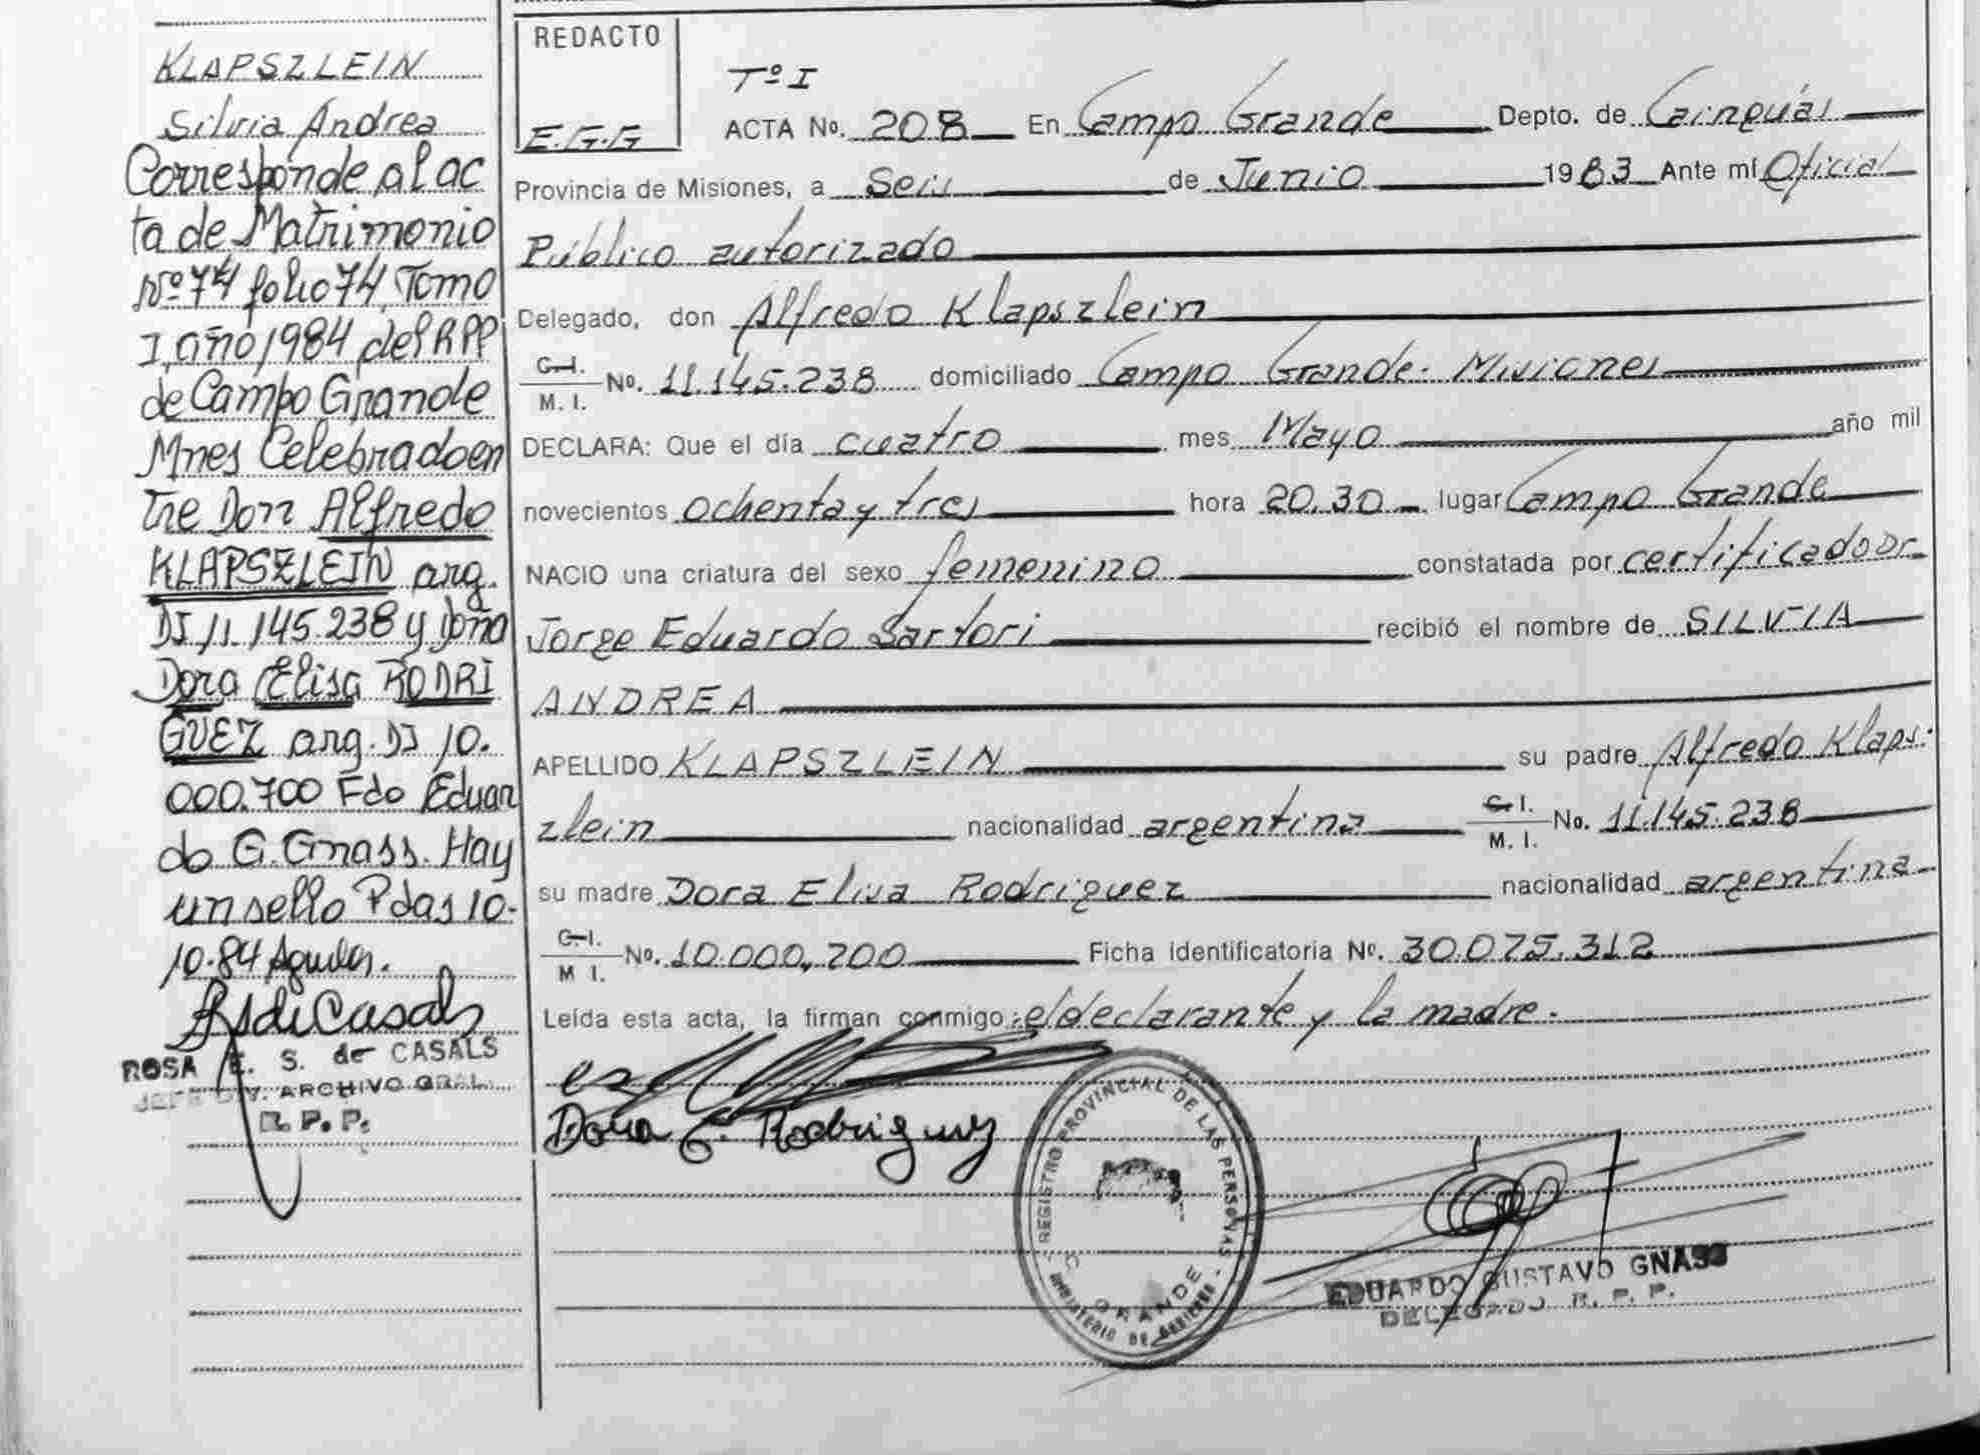 KLAPSZLEIN
Silvia Andrea
Corresponde al ac
ta de Matrimonio
Nº 74 folio 74, Tomo
I, año 1984 del RPP
de Campo Grande
Mnes Celebrado en
tre Don Alfredo
KLAPSZLEIN arg.
DI 11.145.238 y Doña
Dora Elisa RODRI
GUEZ arg. DI 10.
000.700 Fdo Eduar
do G. Gnass. Hay
un sello Pdas 10-
10-84
ROSA E. S. de CASALS
JEFE DIV. ARCHIVO GRAL.
R. P. P.
REDACTO
E.G.G
Tº I
ACTA No. 208 En Campo Grande Depto. de Cainguás
Provincia de Misiones, a Seis de Junio 1983 Ante mí Oficial
Público autorizado
Delegado, don Alfredo Klapszlein
C.I. M. I. No. 11.145.238 domiciliado Campo Grande. Misiones
DECLARA: Que el día cuatro mes Mayo año mil
novecientos ochenta y tres hora 20.30 lugar Campo Grande
NACIO una criatura del sexo femenino constatada por certificado Dr
Jorge Eduardo Sartori recibió el nombre de SILVIA
ANDREA
APELLIDO KLAPSZLEIN su padre Alfredo Klaps-
zlein nacionalidad argentina C.I. M. I. No. 11.145.238
su madre Dora Elisa Rodriguez nacionalidad argentina
C.I. M I. No. 10.000.700 Ficha identificatoria Nº. 30.075.312
Leída esta acta, la firman conmigo: el declarante y la madre.
Dora E. Rodriguez
- REGISTRO PROVINCIAL DE LAS PERSONAS -
C GRANDE
MINISTERIO DE GOBIERNO
EDUARDO GUSTAVO GNASS
DELEGADO R. P. P.